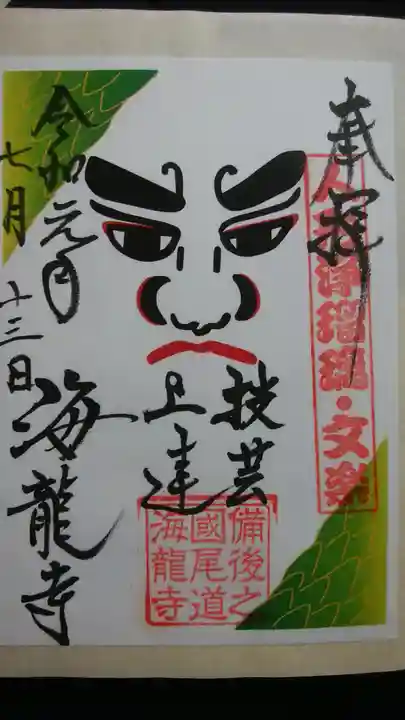 奉拝
人形浄瑠璃・文楽
技芸
上達
備後之
國尾道
海龍寺
海龍寺
令和元年
七月
十三日